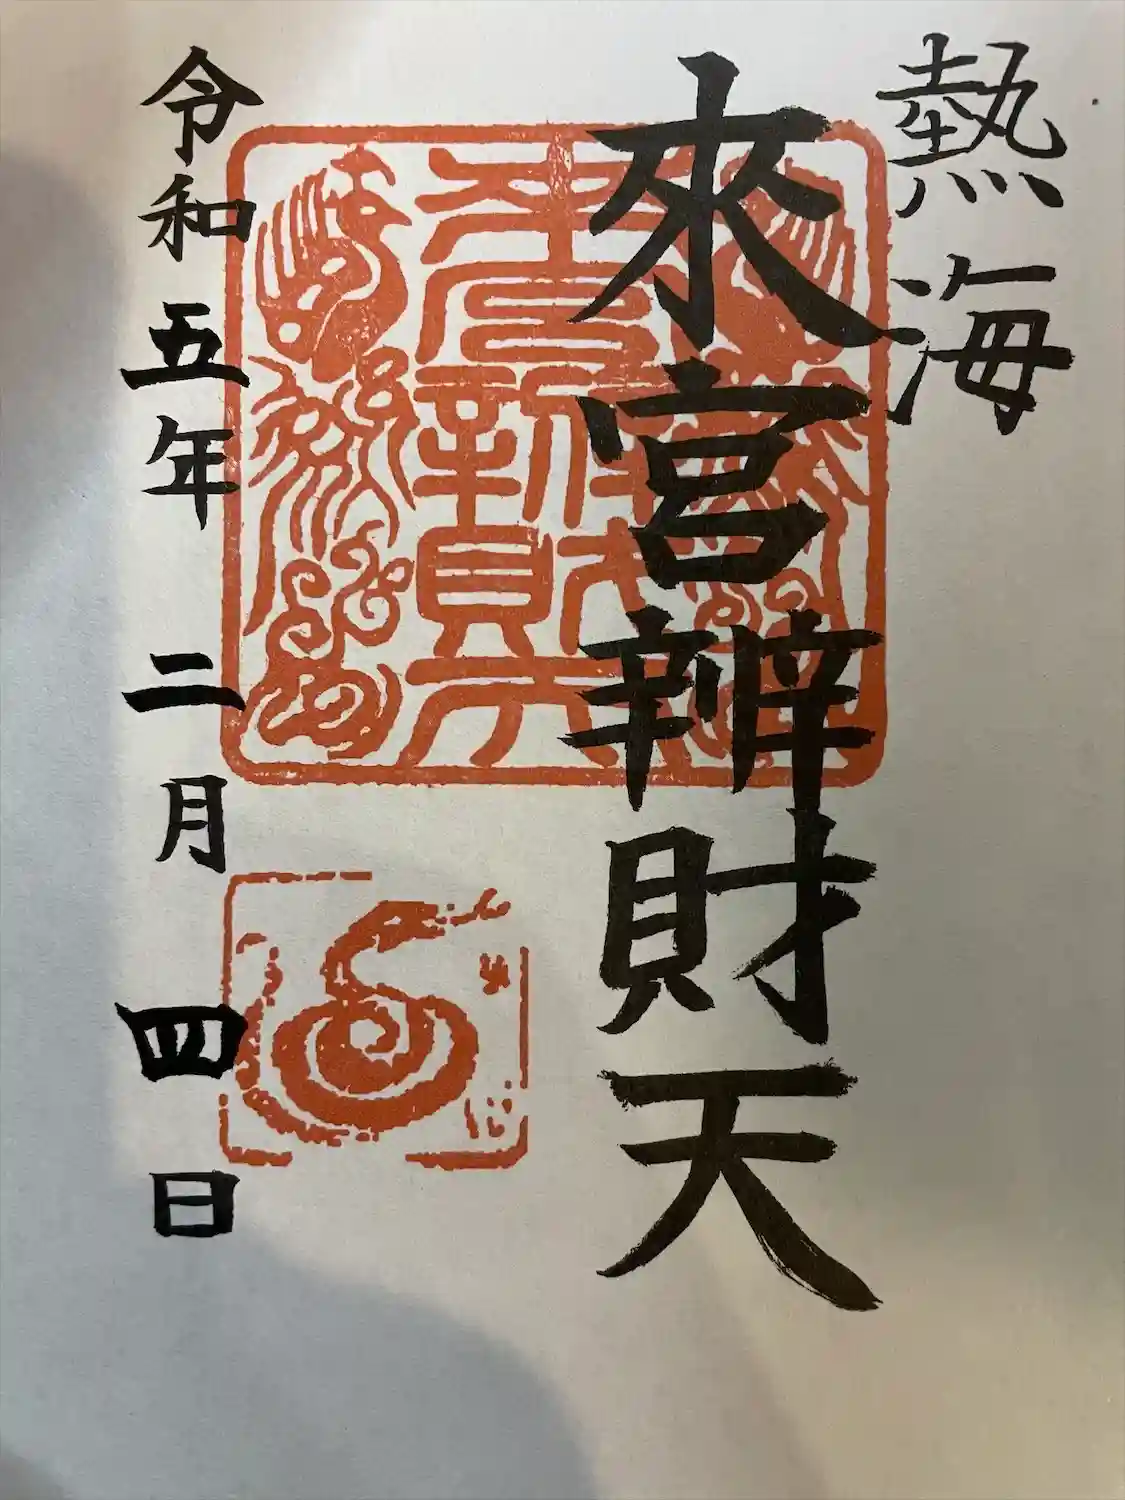 熱海
來宮辨財天
令和五年 二月四日